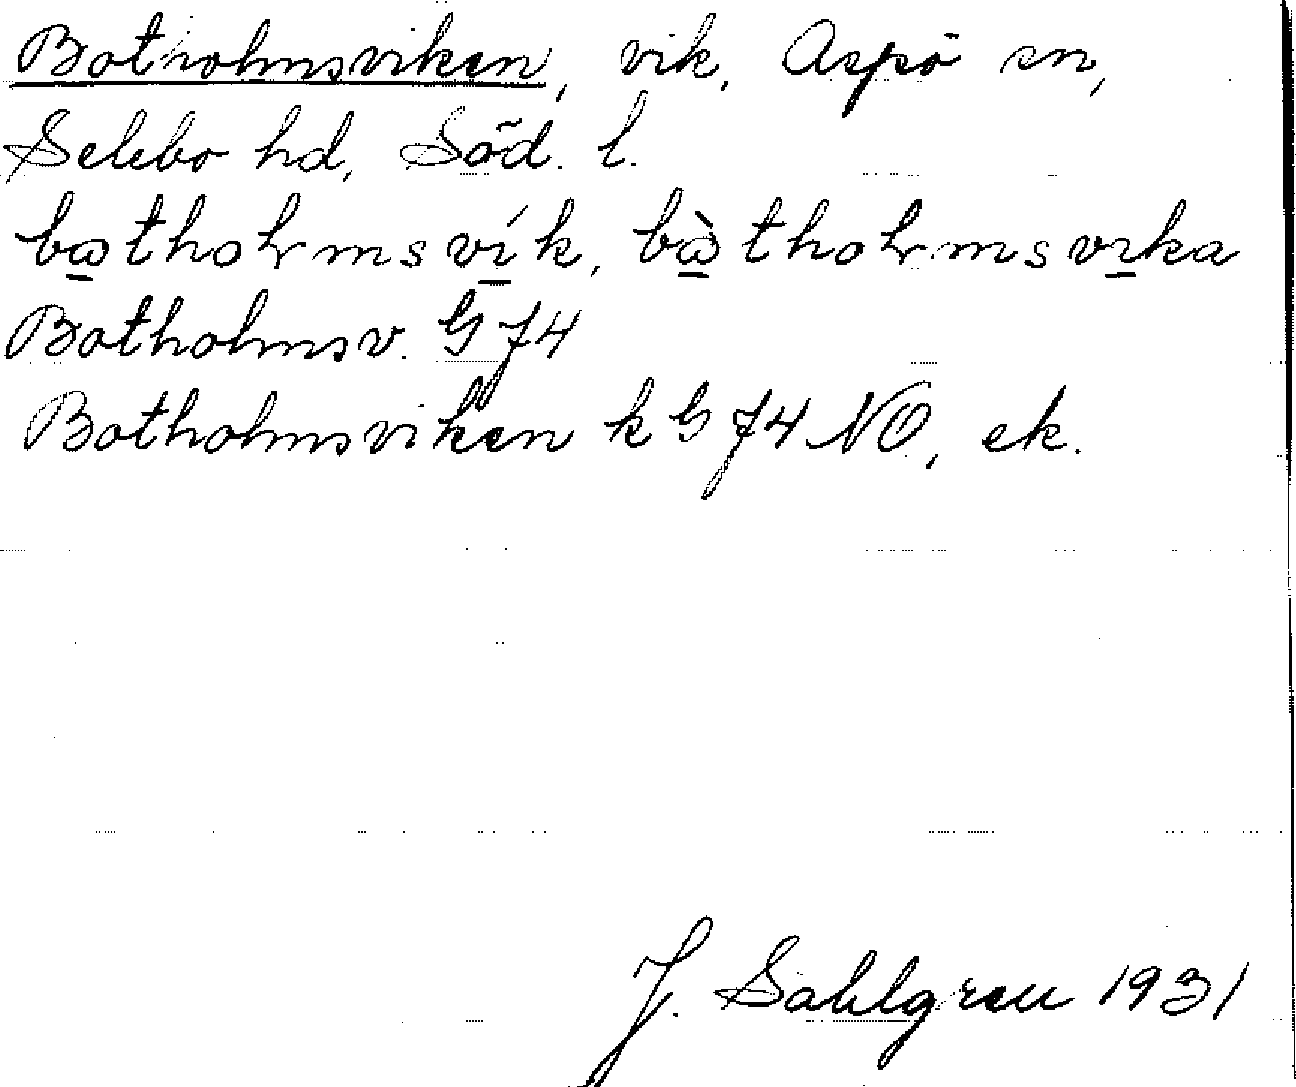 Botholmsviken, vik, Aspö sn,
Selebo hd, Söd. l.
batholmsvík, bàtholmsvika
Botholmsv. G 74
Botholmsviken k G 74 NO, ek.
J. Sahlgren 1931